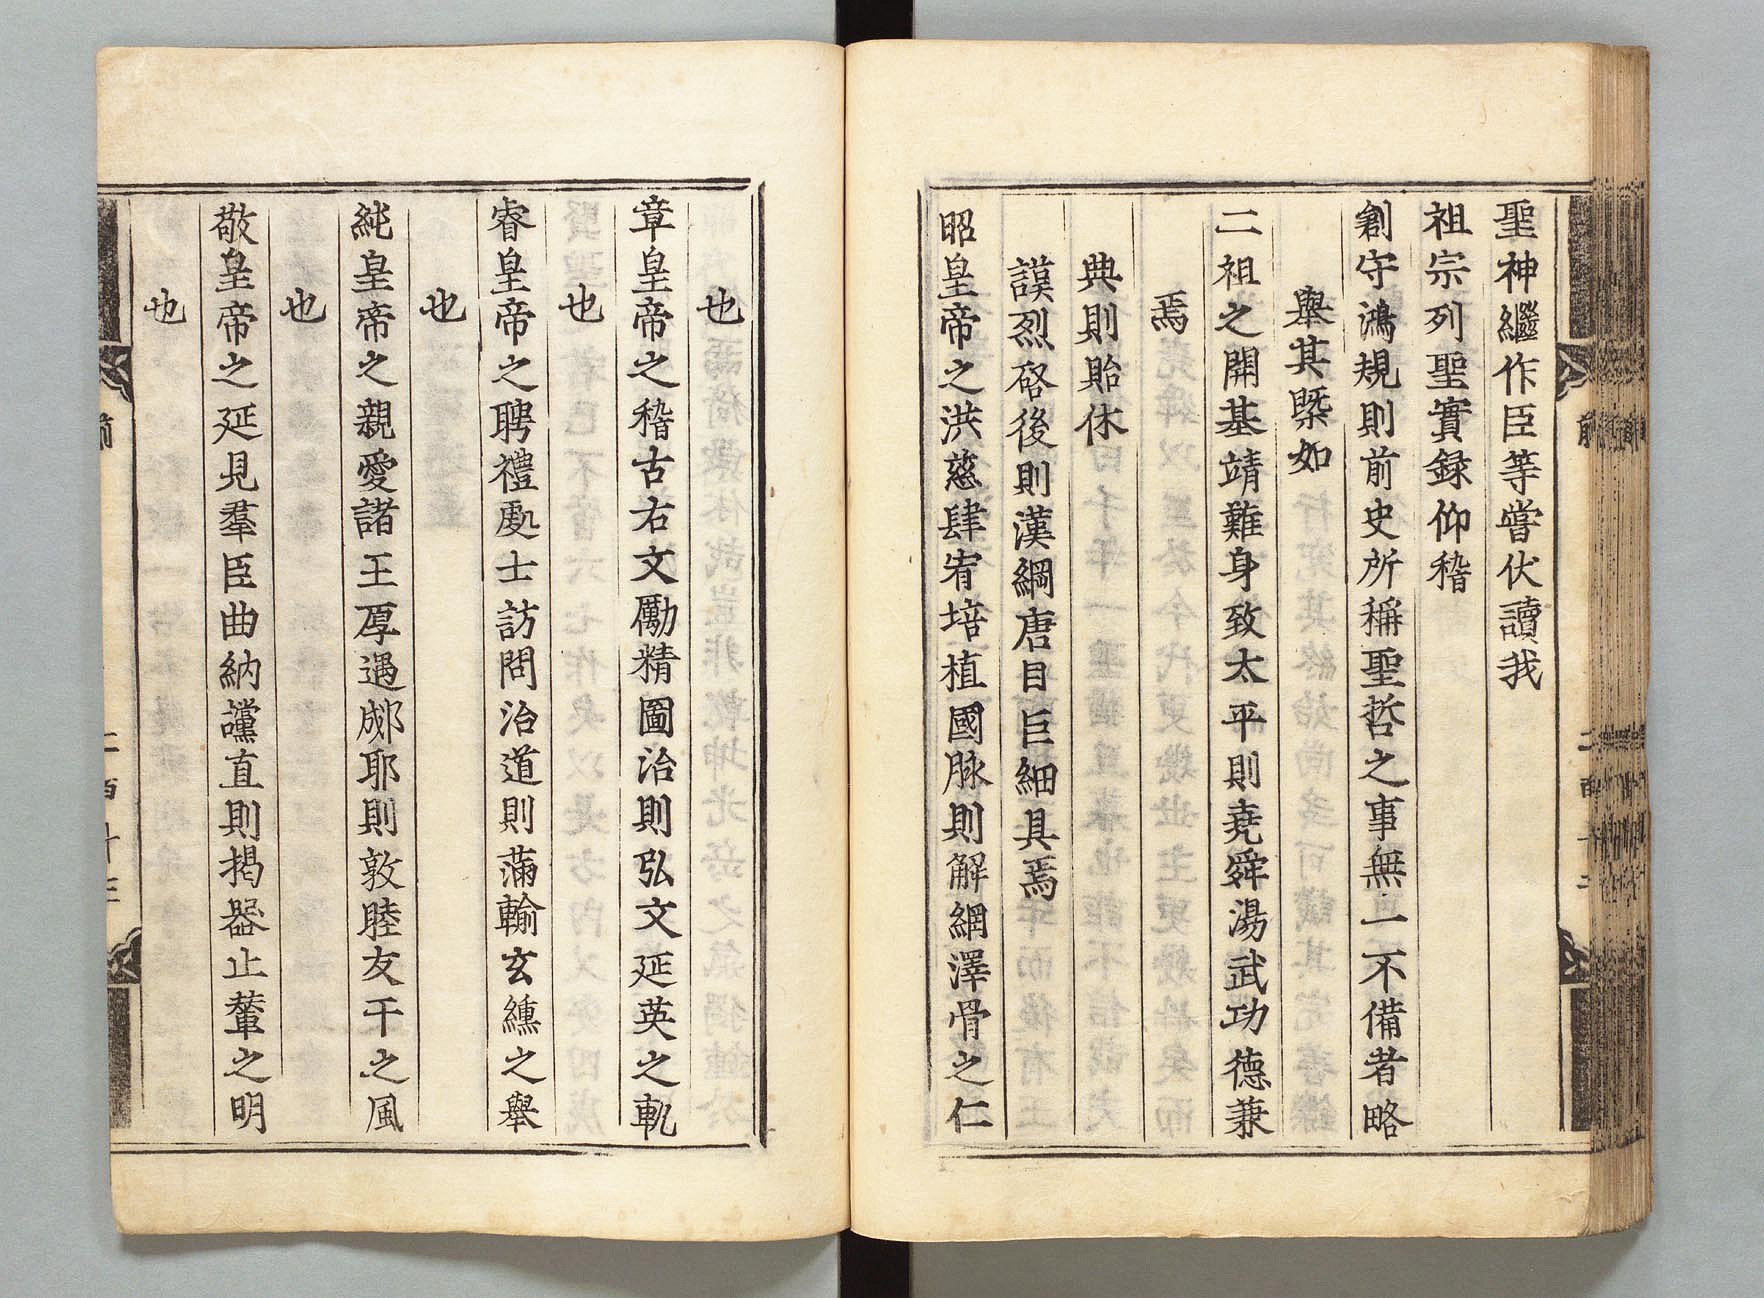 聖神繼作臣等嘗伏讀我
祖宗列聖實録仰稽
創守鴻規則前史所稱聖哲之事無一不備者略
舉其槩如
二祖之開基靖難身致太平則堯舜湯武功德兼
焉
典則貽休
謨烈啓後則漢綱唐目巨細具焉
昭皇帝之洪慈肆宥培植國脉則解網澤骨之仁
也
章皇帝之稽古右文勵精圖治則弘文延英之軌
也
睿皇帝之聘禮處士訪問治道則蒲輪玄纁之舉
也
純皇帝之親愛諸王厚遇郕邸則敦睦友于之風
也
敬皇帝之延見羣臣曲納讜直則揭器止輦之明
也